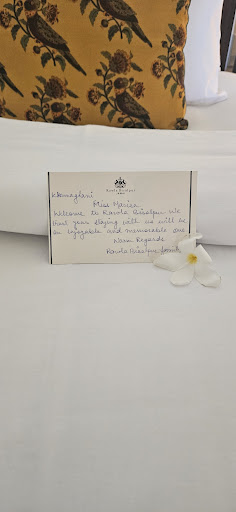 Rawla Bisalpur
Khamaghani
Miss Marisa
Welcome to Rawla Bisalpur We
that your staying with us will be
an enjoyable and memorable one
Warm Regards
Rawla Bisalpur